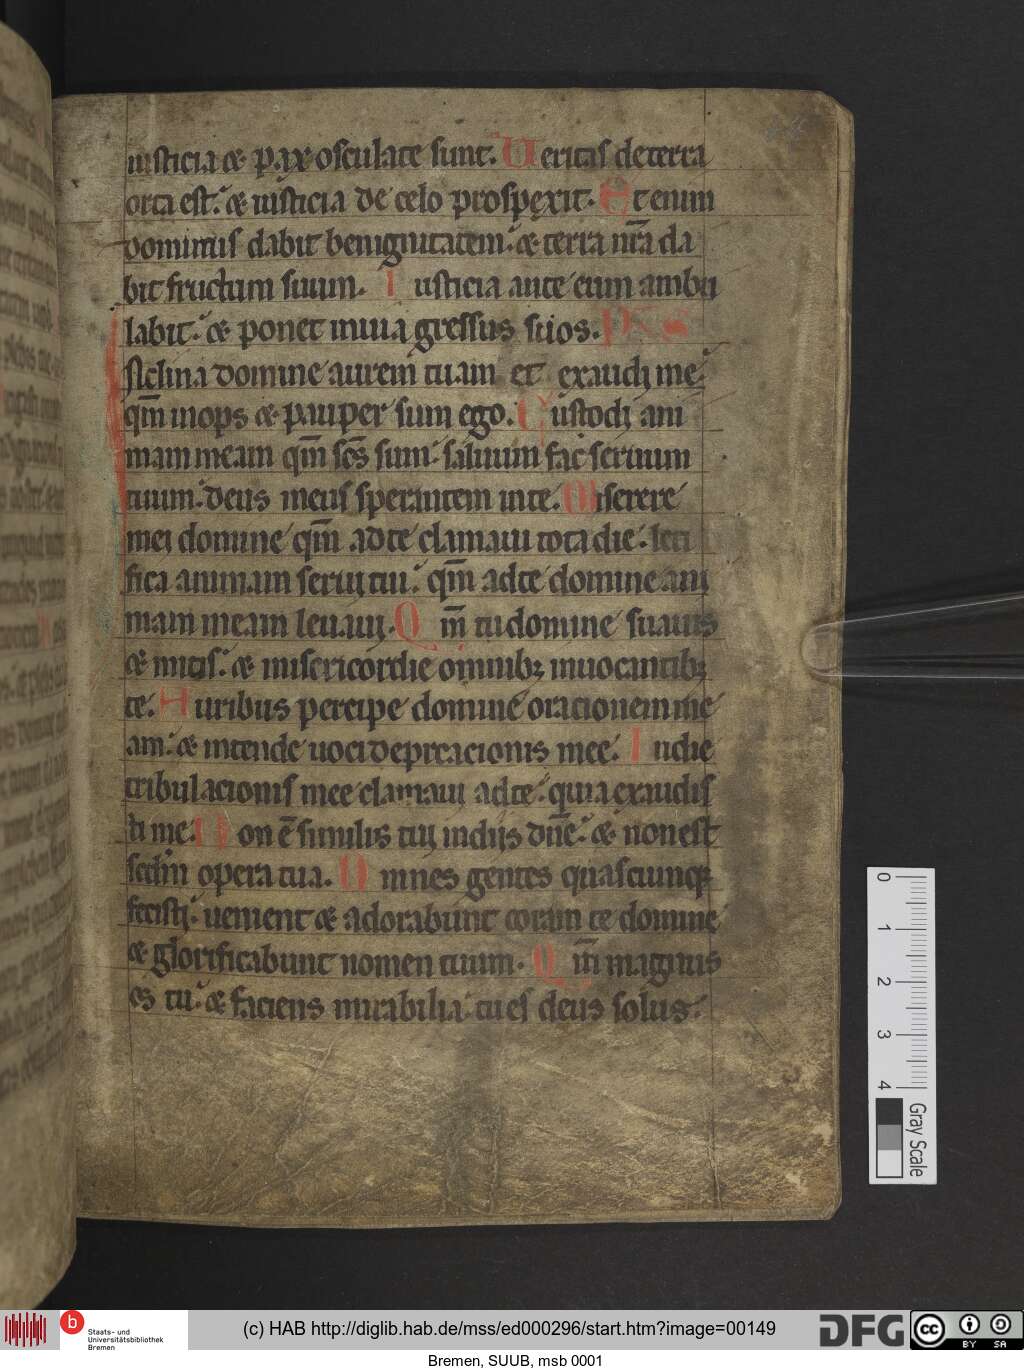 iusticia & pax osculate sunt. Ueritas de terra
orta est. & iusticia de celo prospexit. Etenim
dominus dabit benignitatem. & terra nr̄a da
bit fructum suum. Iusticia ante eum ambu
labit. & ponet in uia gressus suos. Ps
Inclina domine aurem tuam et exaudi me
qm̄ inops & pauper sum ego. Custodi ani
mam meam qm̄ scs̄ sum. saluum fac seruum
tuum. deus meus sperantem in te. Miserere
mei domine qm̄ ad te clamaui tota die. leti
fica animam serui tui. qm̄ ad te domine ani
mam meam leuaui. Qm̄ tu domine suauis
& mitis. & misericordie omnibꝫ inuocantibꝫ
te. Auribus percipe domine oracionem me
am. & intende uoci deprecacionis mee. In die
tribulacionis mee clamaui ad te. quia exaudis
ti me. Non ē similis tui in diis dn̄e. & non est
scdm̄ opera tua. Omnes gentes quascunqꝫ
fecisti. uenient & adorabunt coram te domine
& glorificabunt nomen tuum. Qm̄ magnus
es tu. & faciens mirabilia. tu es deus solus.
0
1
2
3
4
Gray Scale
b
Staats- und
Universitätsbibliothek
Bremen
(c) HAB http://diglib.hab.de/mss/ed000296/start.htm?image=00149
DFG
cc
BY SA
Bremen, SUUB, msb 0001